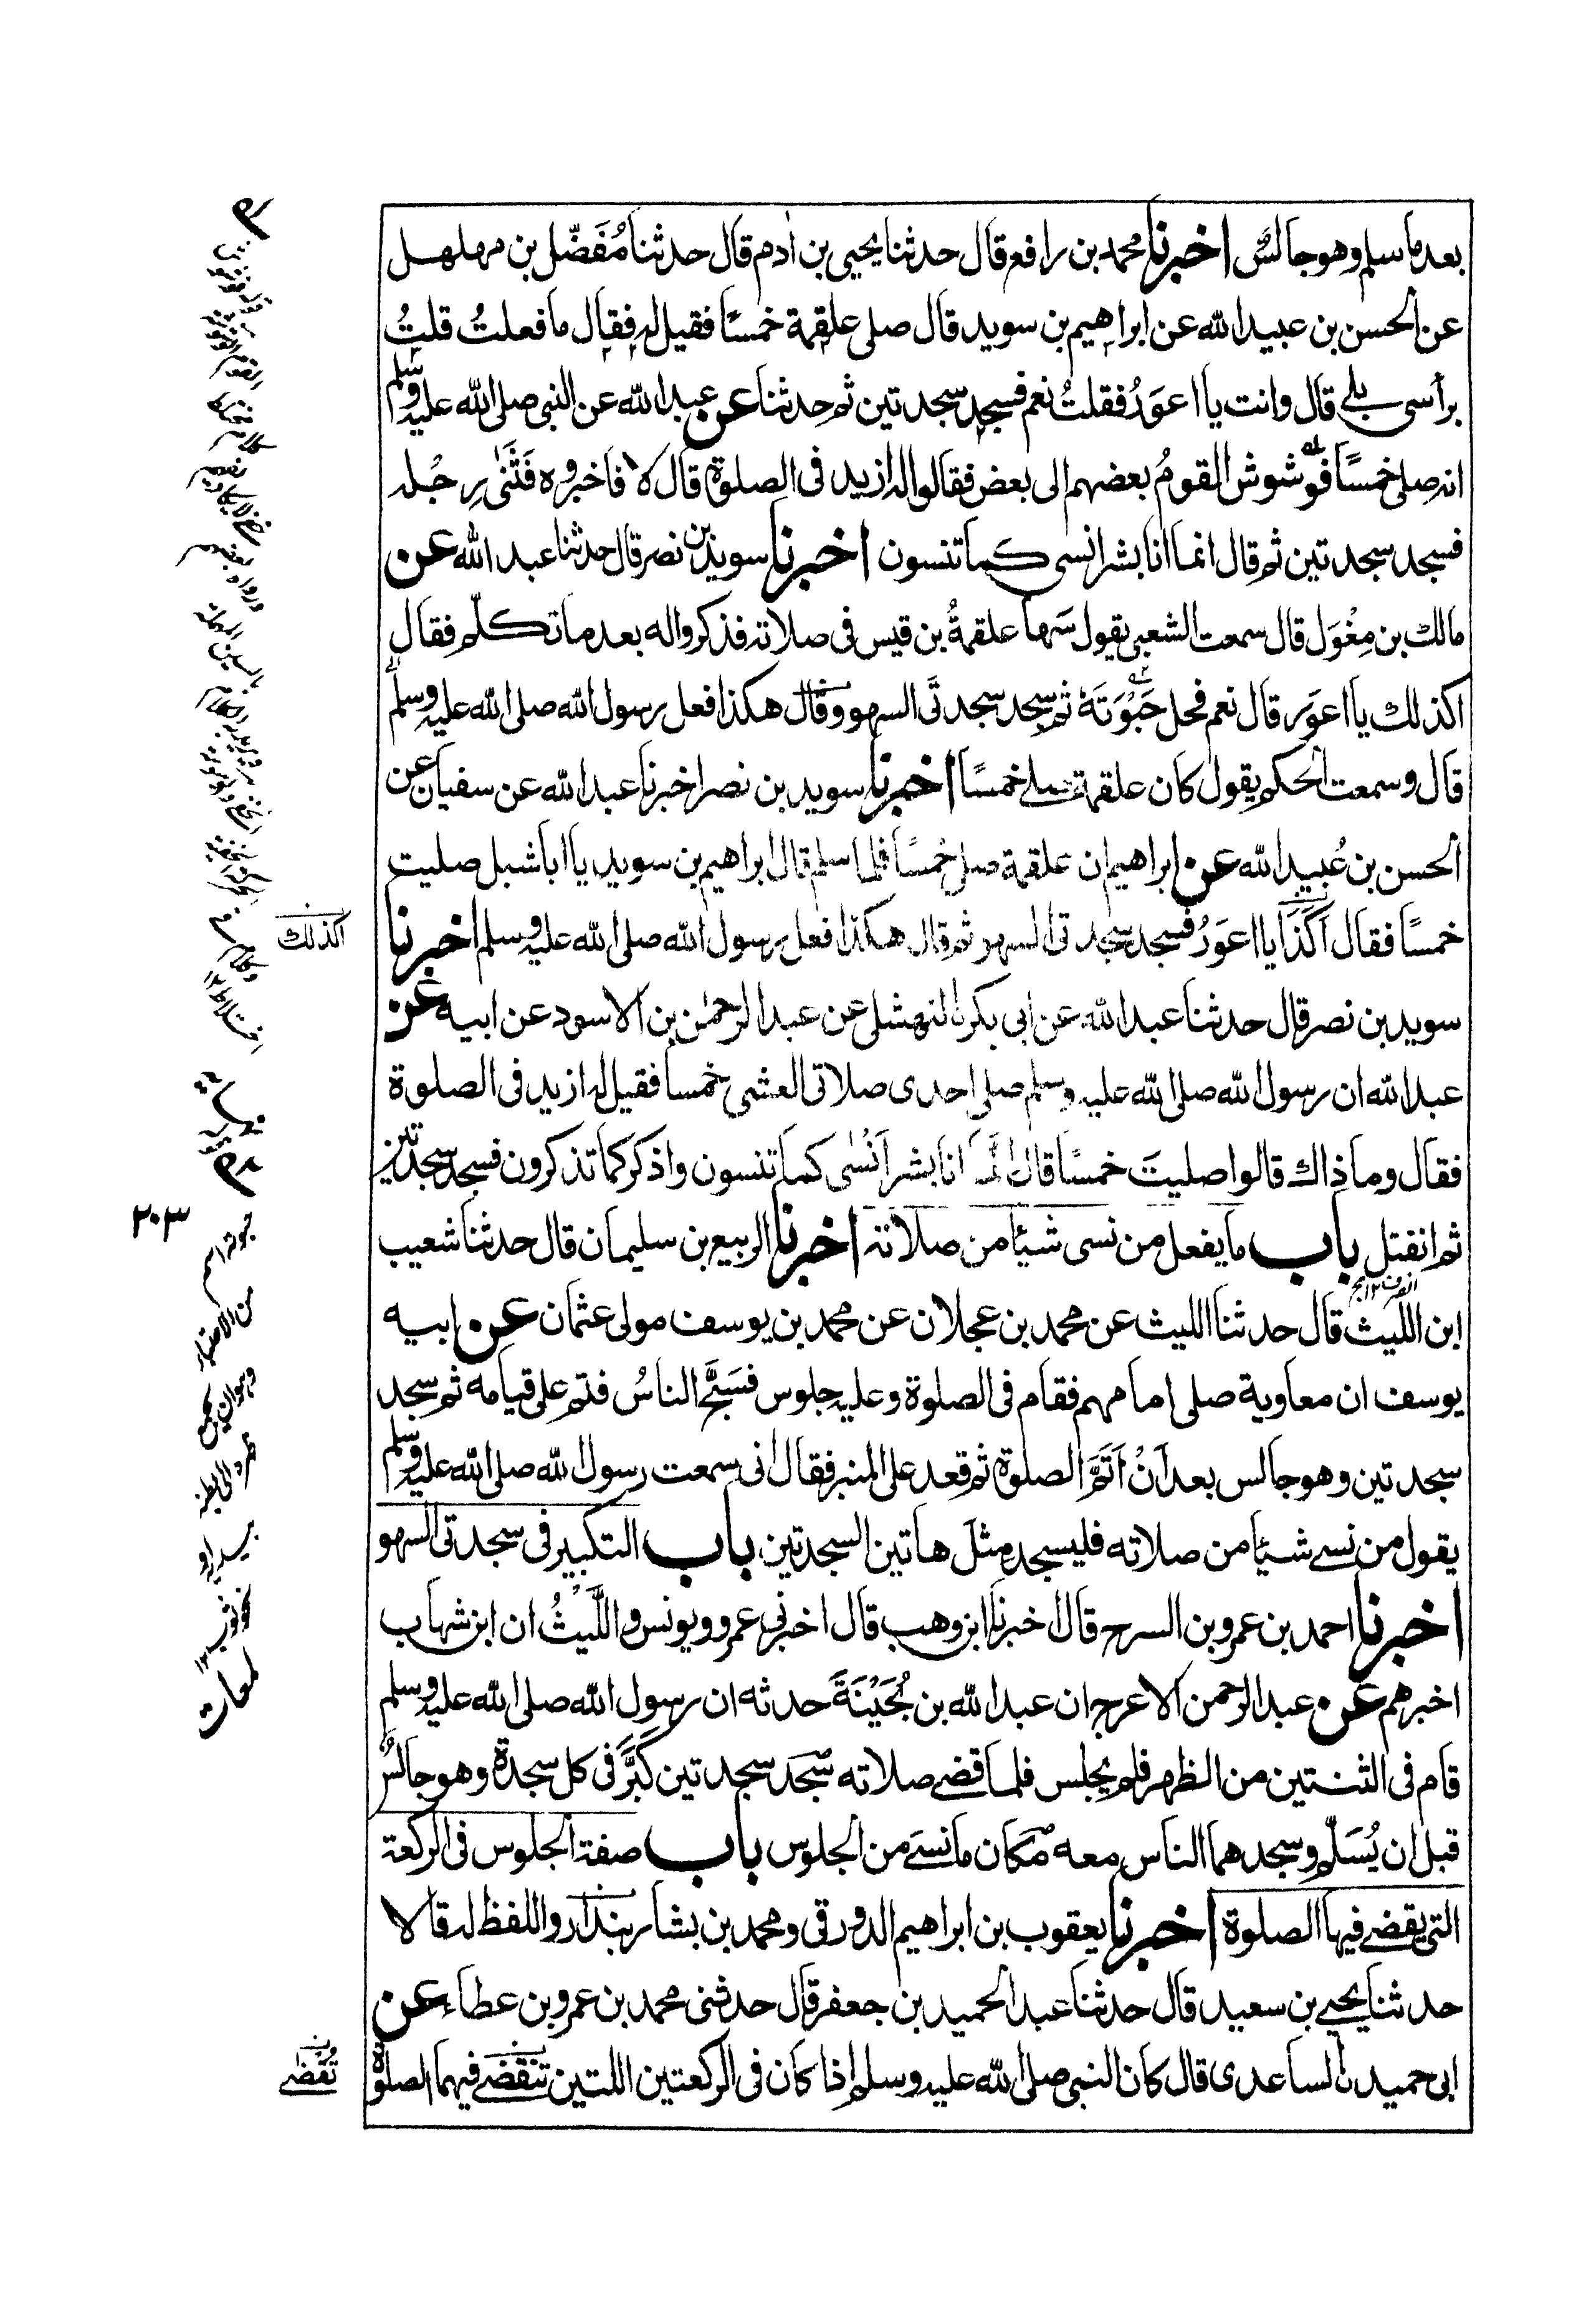 بعد ما سلم وهو جالسٌ اخبرنا محمد بن رافع قال حدثنا يحيى بن اٰدم قال حدثنا مُفَضَّل بن مهلهل
عن الحسن بن عبيد الله عن ابراهيم بن سويد قال صلى علقمة خمسًا فقيل له فقال ما فعلتُ قلتُ
برأسى بلى قال وانت يا اعوَرُ فقلتُ نعم فسجد سجدتين ثم حدثنا عن عبد الله عن النبى صلى الله عليه وسلم
انه صلى خمسًا فوشوش القومُ بعضهم الى بعض فقالوا له ازيد فى الصلوة قال لا فاخبروه فَثَنٰى رِجْله
فسجد سجدتين ثم قال انما انا بشر انسى كما تنسون اخبرنا سويد بن نصر قال حدثنا عبد الله عن
مالك بن مِغْوَل قال سمعت الشعبى يقول سَها علقمةُ بن قيس فى صلاته فذكروا له بعد ما تكلّم فقال
اكذلك يا اعوَر قال نعم فحل حَبْوَتَهُ ثم سجد سجدتَى السهو وقال هكذا فعل رسول الله صلى الله عليه وسلم
قال وسمعت الحكم يقول كان علقمة صلى خمسًا اخبرنا سويد بن نصر اخبرنا عبد الله عن سفيان عن
الحسن بن عُبيد الله عن ابراهيم ان علقمة صلى خمسًا فلما سلم قال ابراهيم بن سويد يا ابا شبل صليت
خمسًا فقال اَكَذَا يا اعوَرُ فسجد سجدتى السهو ثم قال هكذا فعل رسول الله صلى الله عليه وسلم اخبرنا
اكذلك
سويد بن نصر قال حدثنا عبد الله عن ابى بكر النهشلى عن عبد الرحمٰن بن الاسود عن ابيه عن
عبد الله ان رسول الله صلى الله عليه وسلم صلى احدى صلاتى العشى خمسا فقيل له ازيد فى الصلوة
فقال وما ذاك قالوا صليتَ خمسًا قال انما انا بشر اَنْسٰى كما تنسون واذكر كما تذكرون فسجد سجدتين
ثم انفتل باب ما يفعل من نسى شيئا من صلاته اخبرنا الربيع بن سليمان قال حدثنا شعيب
٢٠٣
ابن الليث قال حدثنا الليث عن محمد بن عجلان عن محمد بن يوسف مولى عثمان عن ابيه
يوسف ان معاوية صلى امامهم فقام فى الصلوة وعليه جلوس فسَبَّحَ الناسُ فتم على قيامه ثم سجد
سجدتين وهو جالس بعد اَنْ اَتَمَّ الصلوة ثم قعد على المنبر فقال انى سمعت رسول الله صلى الله عليه وسلم
يقول من نسى شيئا من صلاته فليسجد مثلَ هاتين السجدتين باب التكبير فى سجدتى السهو
اخبرنا احمد بن عمرو بن السرح قال اخبرنا ابن وهب قال اخبرنى عمرو ويونس واللَّيْثُ ان ابن شهاب
اخبرهم عن عبد الرحمن الاعرج ان عبد الله بن بُحَيْنَةَ حدثه ان رسول الله صلى الله عليه وسلم
قام فى الثنتين من الظهر فلم يجلس فلما قضى صلاته سَجَد سجدتين كَبَّرَ فى كل سجدة وهو جالسٌ
قبل ان يُسَلّم وسجدهما الناس معه مكان ما نسى من الجلوس باب صفة الجلوس فى الركعة
التى يقضى فيها الصلوة اخبرنا يعقوب بن ابراهيم الدورقى ومحمد بن بشار بندار واللفظ له قالا
حدثنا يحيى بن سعيد قال حدثنا عبد الحميد بن جعفر قال حدثنى محمد بن عمرو بن عطاء عن
ابى حميد الساعدى قال كان النبى صلى الله عليه وسلم اذا كان فى الركعتين اللتين تنقضى فيهما الصلوة
تُقْضٰى